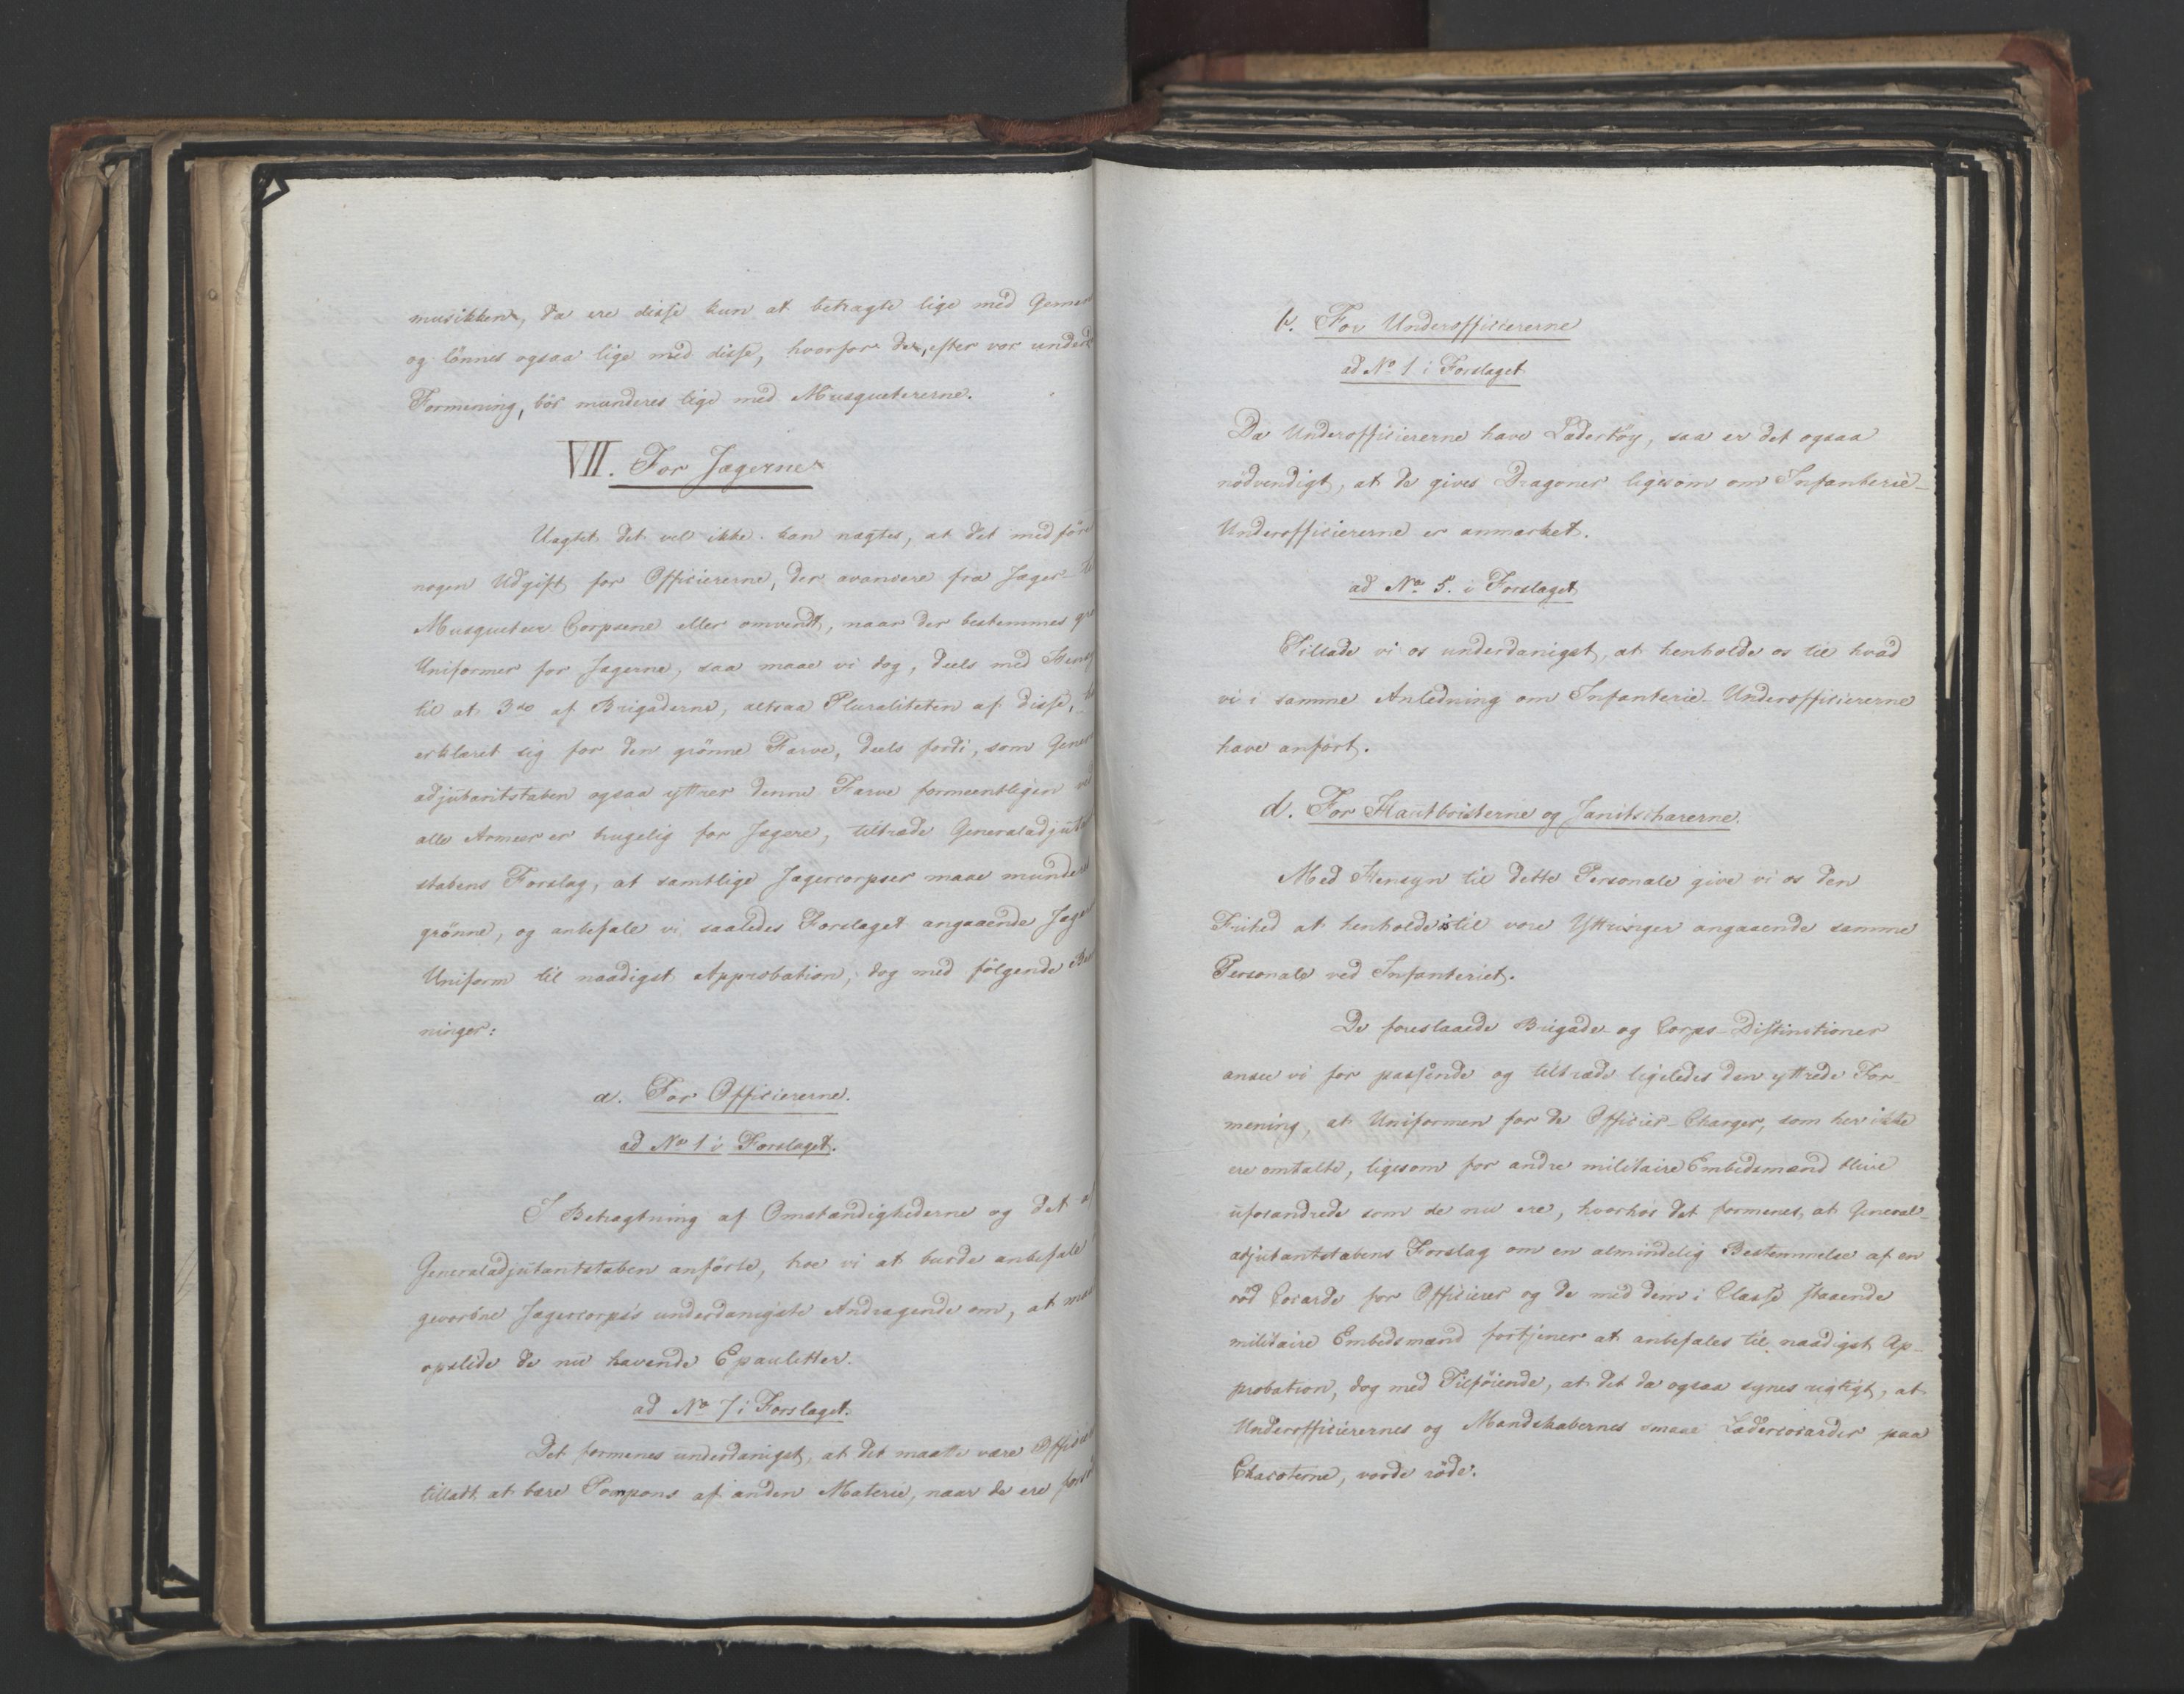 musikken, da ere disse kun at betragte lige med Gemen
og lönnes ogsaa lige med disse, hvorfor de, efter vor underd
Formening, bör munderes lige med Musquetererne.
VII. For Jægerne
Uagtet det vel ikke kan nægtes, at det medföre
nogen Udgift for Officiererne, der avancere fra Jæger- til
Musqueteer Corpsene eller omvendt, naar der bestemmes grö
Uniformer for Jægerne, saa maae vi dog, deels med Hensy
til at 3de af Brigaderne, altsaa Pluraliteten af disse,
erklæret sig for den grönne Farve, deels fordi, som General
adjutantstaben ogsaa yttrer denne Farve formeentligen ved
alle Armeer er brugelig for Jægere, tiltræde Generaladjutant
stabens Forslag, at samtlige Jægercorpser maae munderes
grönne, og anbefale vi saaledes Forslaget angaaende Jæger
Uniform til naadigst Approbation, dog med fölgende Bem
ninger:
a. For Officiererne.
ad No 1 i Forslaget.
I Betragtning af Omstændighederne og det af
Generaladjutantstaben anförte, troe vi at burde anbefale
gevorbne Jægercorps's underdanigste Andragende om, at maa
opslide de nu havende Epauletter.
ad No 7 i Forslaget.
Det formenes underdanigst, at det maatte være Officie
tilladt at bære Pompons af anden Materie, naar de ere fors
c. For Underofficiererne
ad No 1 i Forslaget
Da Underofficiererne have Lædertöy, saa er det ogsaa
nödvendigt, at de gives Dragoner ligesom om Infanterie-
Underofficiererne er anmærket.
ad No 5. i Forslaget
Tillade vi os underdanigst, at henholde os til hvad
vi i samme Anledning om Infanterie-Underofficiererne
have anfört.
d. For Hautboisterne og Janitscharerne.
Med Hensyn til dette Personale give vi os den
Frihed at henholde os til vore Yttringer angaaende samme
Personale ved Infanteriet.
De foreslaaede Brigade og Corps-Distinctioner
ansee vi for passende og tiltræde ligeledes den yttrede For-
mening, at Uniformen for de Officier-Charger, som her ikke
ere omtalte, ligesom for andre militaire Embedsmænd blive
uforandrede som de nu ere, hvorhos det formenes, at General-
adjutantstabens Forslag om en almindelig Bestemmelse af en
röd Cocarde for Officierer og de med dem i Classe staaende
militaire Embedsmænd fortjener at anbefales til naadigst Ap-
probation, dog med Tilföiende, at det da ogsaa synes rigtigt, at
Underofficierernes og Mandskabernes smaae Lædercocarder paa
Chacoterne, vorde röde.